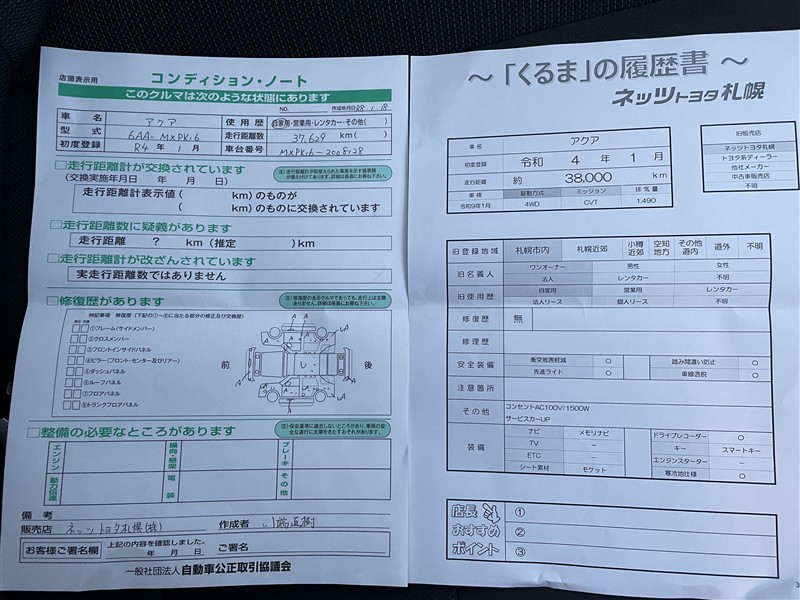 店頭表示用
コンディション・ノート
このクルマは次のような状態にあります
NO.
作成年月日 R8.1.18
車名 アクア 使用歴 自家用・営業用・レンタカー・その他( )
型式 6AA-MXPK16 走行距離数 37.629 km( )
初度登録 R4年 1月 車台番号 MXPK16-2008128
走行距離計が交換されています
(交換実施年月日 年 月 日)
走行距離計表示値 ( km)のものが
( km)のものに交換されています
走行距離数に疑義があります
走行距離 ? km(推定 )km
走行距離計が改ざんされています
実走行距離数ではありません
修復歴があります
特記事項 修復歴(下記の①~⑧に当たる部分の修正及び交換歴)
①フレーム(サイドメンバー)
②クロスメンバー
③フロントインサイドパネル
④ピラー(フロント・センター及びリアー)
⑤ダッシュパネル
⑥ルーフパネル
⑦フロアパネル
⑧トランクフロアパネル
前
後
整備の必要なところがあります
エンジン
操向・懸架
ブレーキ
動力伝達
電装
その他
備考
販売店 ネッツトヨタ札幌(株) 作成者
お客様ご署名欄
上記の内容を確認しました。
年 月 日 ご署名
一般社団法人 自動車公正取引協議会
~「くるま」の履歴書~
ネッツトヨタ札幌
車名 アクア
初度登録 令和 4 年 1 月
走行距離 約 38,000 km
車検 駆動方式 ミッション 排気量
令和9年1月 4WD CVT 1.490
旧販売店
ネッツトヨタ札幌
トヨタ系ディーラー
他社メーカー
中古車販売店
不明
旧登録地域 札幌市内 札幌近郊 小樽近郊 空知地方 その他道内 道外 不明
旧名義人 ワンオーナー 男性 女性
法人 レンタカー 不明
旧使用歴 自家用 営業用 レンタカー
法人リース 個人リース 不明
修復歴 無
修理歴
安全装備 衝突被害軽減 ○ 踏み間違い防止 ○
先進ライト ○ 車線逸脱 ○
注意箇所
その他 コンセントAC100V/1500W
サービスカーUP
装備 ナビ メモリナビ ドライブレコーダー ○
TV – キー スマートキー
ETC – エンジンスターター –
シート素材 モケット 寒冷地仕様 ○
店長
おすすめ
ポイント
①
②
③
3